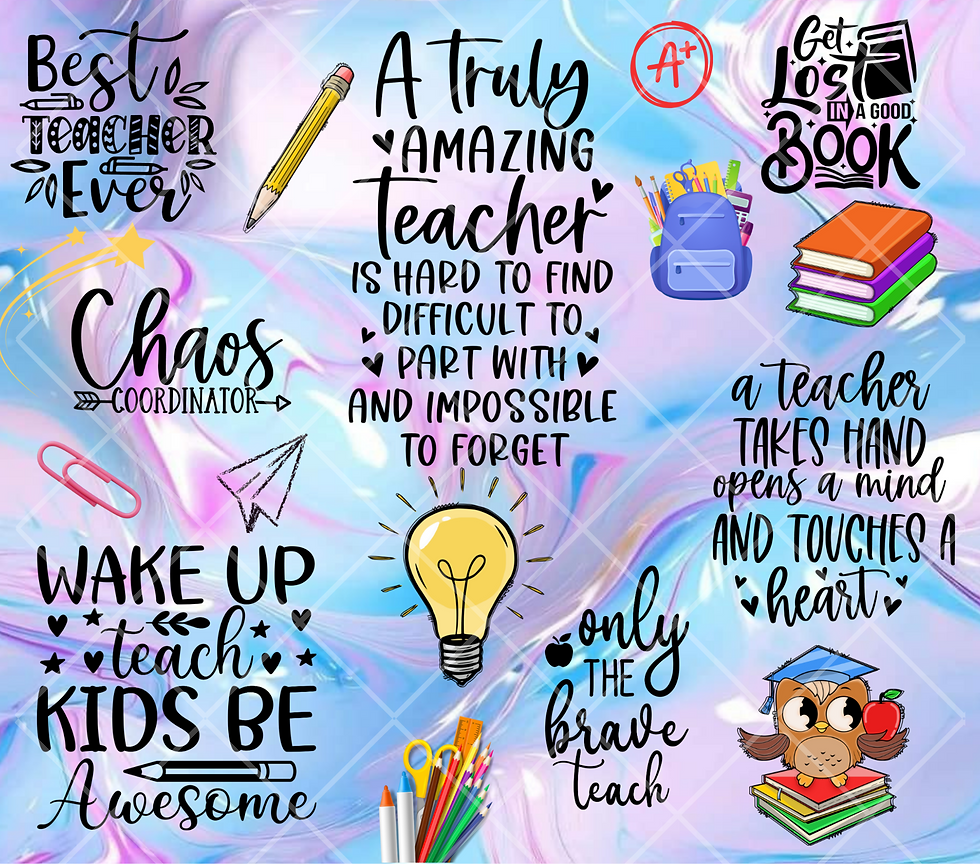 Best
TEACHER
Ever
A Truly
AMAZING
Teacher
IS HARD TO FIND
DIFFICULT TO
PART WITH
AND IMPOSSIBLE
TO FORGET
A+
Get
LOST
IN A GOOD
BOOK
Chaos
COORDINATOR
a teacher
TAKES HAND
opens a mind
AND TOUCHES A
heart
WAKE UP
teach
KIDS BE
Awesome
only
THE
brave
teach